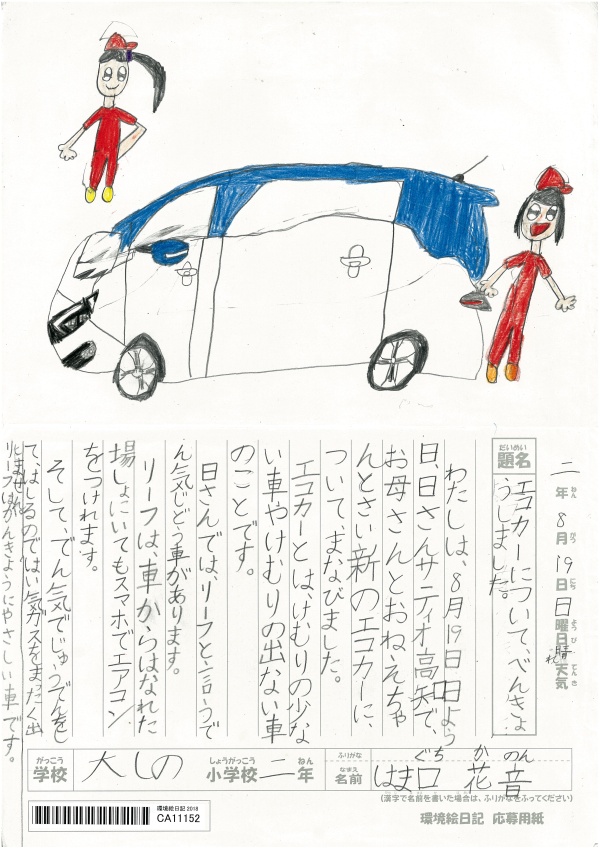 二年8月19日日曜日晴れ天気
ねん がつ にち ようび てんき
だいめい
題名
エコカーについて、べんきょ
うしました。
わたしは、8月19日日よう
日、日さんサティオ高知で、
お母さんとおねえちゃ
んとさい新のエコカーに、
ついて、まなびました。
エコカーとは、けむりの少な
い車やけむりの出ない車
のことです。
日さんでは、リーフと言うで
ん気じどう車があります。
リーフは、車からはなれた
場しょにいてもスマホでエアコン
をつけれます。
そして、でん気でじゅうでんをし
て、はしるのではい気ガスをまったく出
しません。
リーフはかんきょうにやさしい車です。
がっこう
学校
大しの
しょうがっこう
小学校
二年
ねん
ふりがな
なまえ
名前
ぐち か のん
はま口 花音
(漢字で名前を書いた場合は、ふりがなをふってください)
環境絵日記 2018
CA11152
環境絵日記 応募用紙